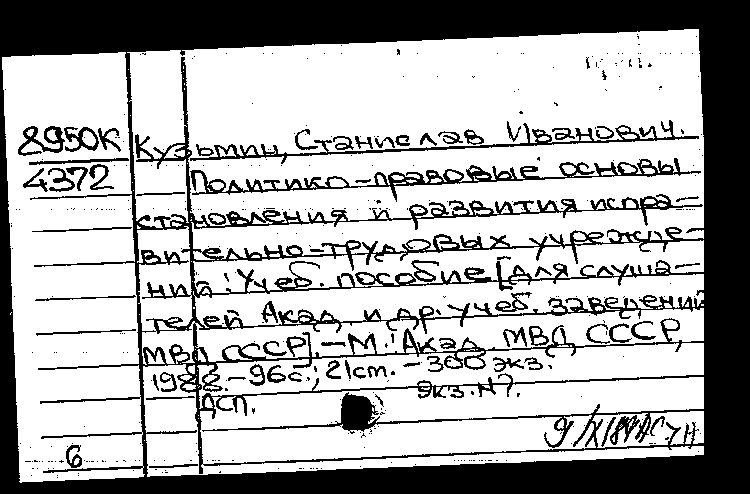 8950К Кузьмин, Станислав Иванович.
4372 Политико-правовые основы
становления и развития испра-
вительно-трудовых учрежде-
ний: Учеб. пособие [для слуша-
телей Акад. и др. учеб. заведений
МВД СССР]. - М.: Акад. МВД СССР,
1988. - 96с.; 21cm. - 300 экз.
ДСП. Экз. N?.
6